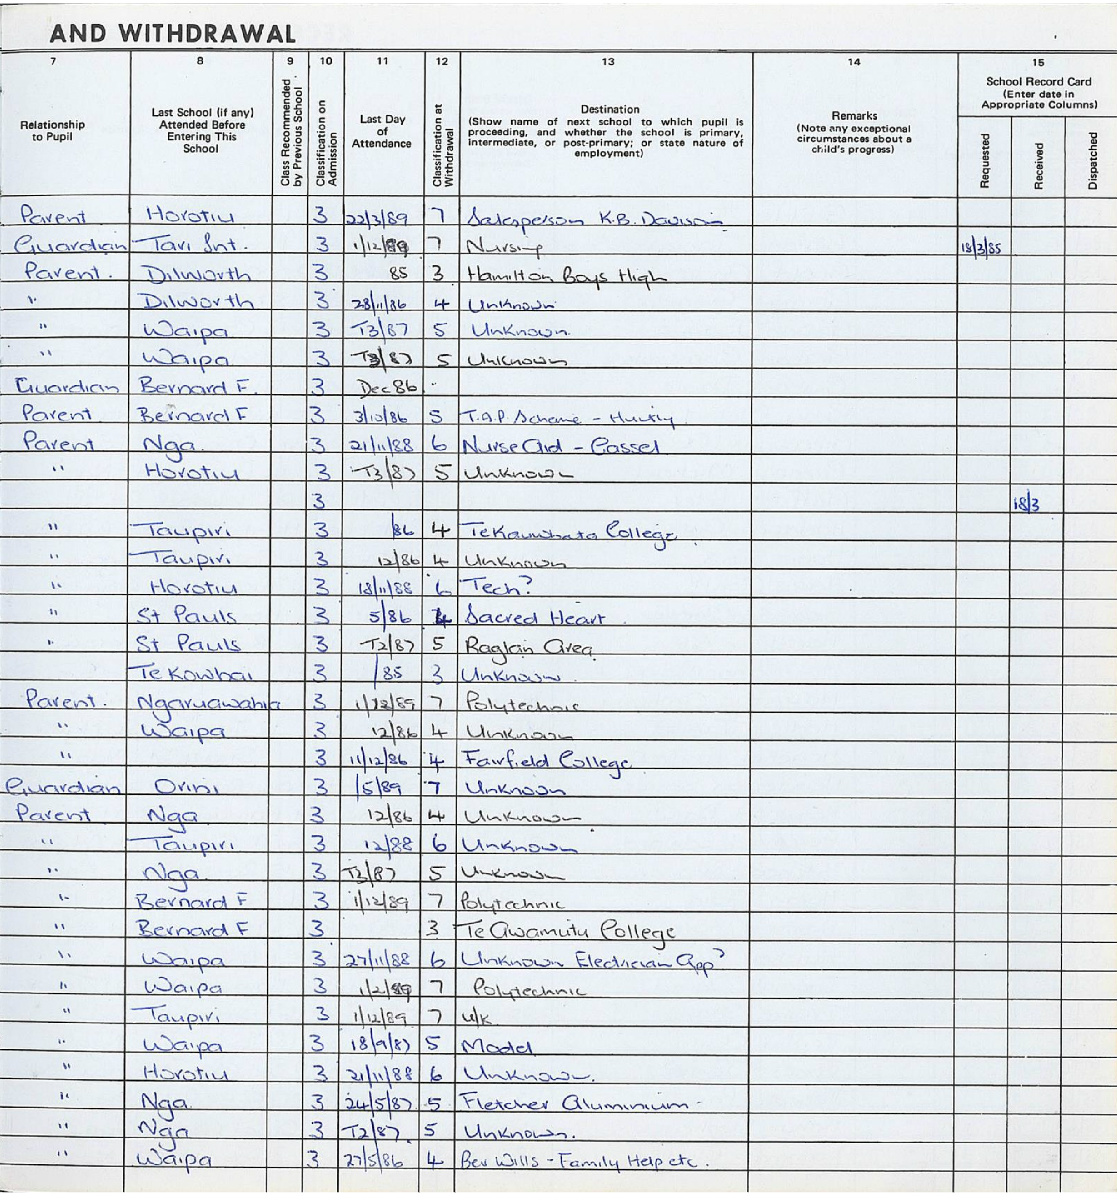 AND WITHDRAWAL
7 8 9 10 11 12 13 14 15
Relationship to Pupil
Last School (if any) Attended Before Entering This School
Class Recommended by Previous School
Classification on Admission
Last Day of Attendance
Classification at Withdrawal
Destination (Show name of next school to which pupil is proceeding, and whether the school is primary, intermediate, or post-primary; or state nature of employment)
Remarks (Note any exceptional circumstances about a child's progress)
School Record Card (Enter date in Appropriate Columns)
Requested Received Dispatched
Parent Horotiu 3 22/3/89 7 Salesperson K.B. Davison
Guardian Tari Int. 3 1/12/89 7 Nursing 18/3/85
Parent. Dilworth 3 85 3 Hamilton Boys High
" Dilworth 3 28/11/86 4 Unknown
" Waipa 3 T3/87 5 Unknown
" Waipa 3 T3/87 5 Unknown
Guardian Bernard F. 3 Dec 86
Parent Bernard F 3 3/10/86 5 T.A.P Scheme - Huntly
Parent Nga 3 21/11/88 6 Nurse Aid - Cassel
" Horotiu 3 T3/87 5 Unknown
3 18/3
" Taupiri 3 /86 4 Te Kauwhata College
" Taupiri 3 12/86 4 Unknown
" Horotiu 3 18/11/88 6 Tech?
" St Pauls 3 5/86 4 Sacred Heart
" St Pauls 3 T2/87 5 Raglan Area
Te Kowhai 3 /85 3 Unknown
Parent. Ngaruawahia 3 1/12/89 7 Polytechnic
" Waipa 3 12/86 4 Unknown
" 3 11/12/86 4 Fairfield College
Guardian Orini 3 /5/89 7 Unknoon
Parent Nga 3 12/86 4 Unknown
" Taupiri 3 12/88 6 Unknown
" Nga 3 T3/87 5 Unknown
" Bernard F 3 1/12/89 7 Polytechnic
" Bernard F 3 3 Te Awamutu College
" Waipa 3 27/11/88 6 Unknown Electrician App?
" Waipa 3 1/2/89 7 Polytechnic
" Taupiri 3 1/12/89 7 u/k
" Waipa 3 18/9/87 5 Model
" Horotiu 3 21/11/88 6 Unknown.
" Nga 3 24/5/87 5 Fletcher Aluminium -
" Nga 3 T2/87. 5 Unknown.
" Waipa 3 27/5/86 4 Bev Wills - Family Help etc.